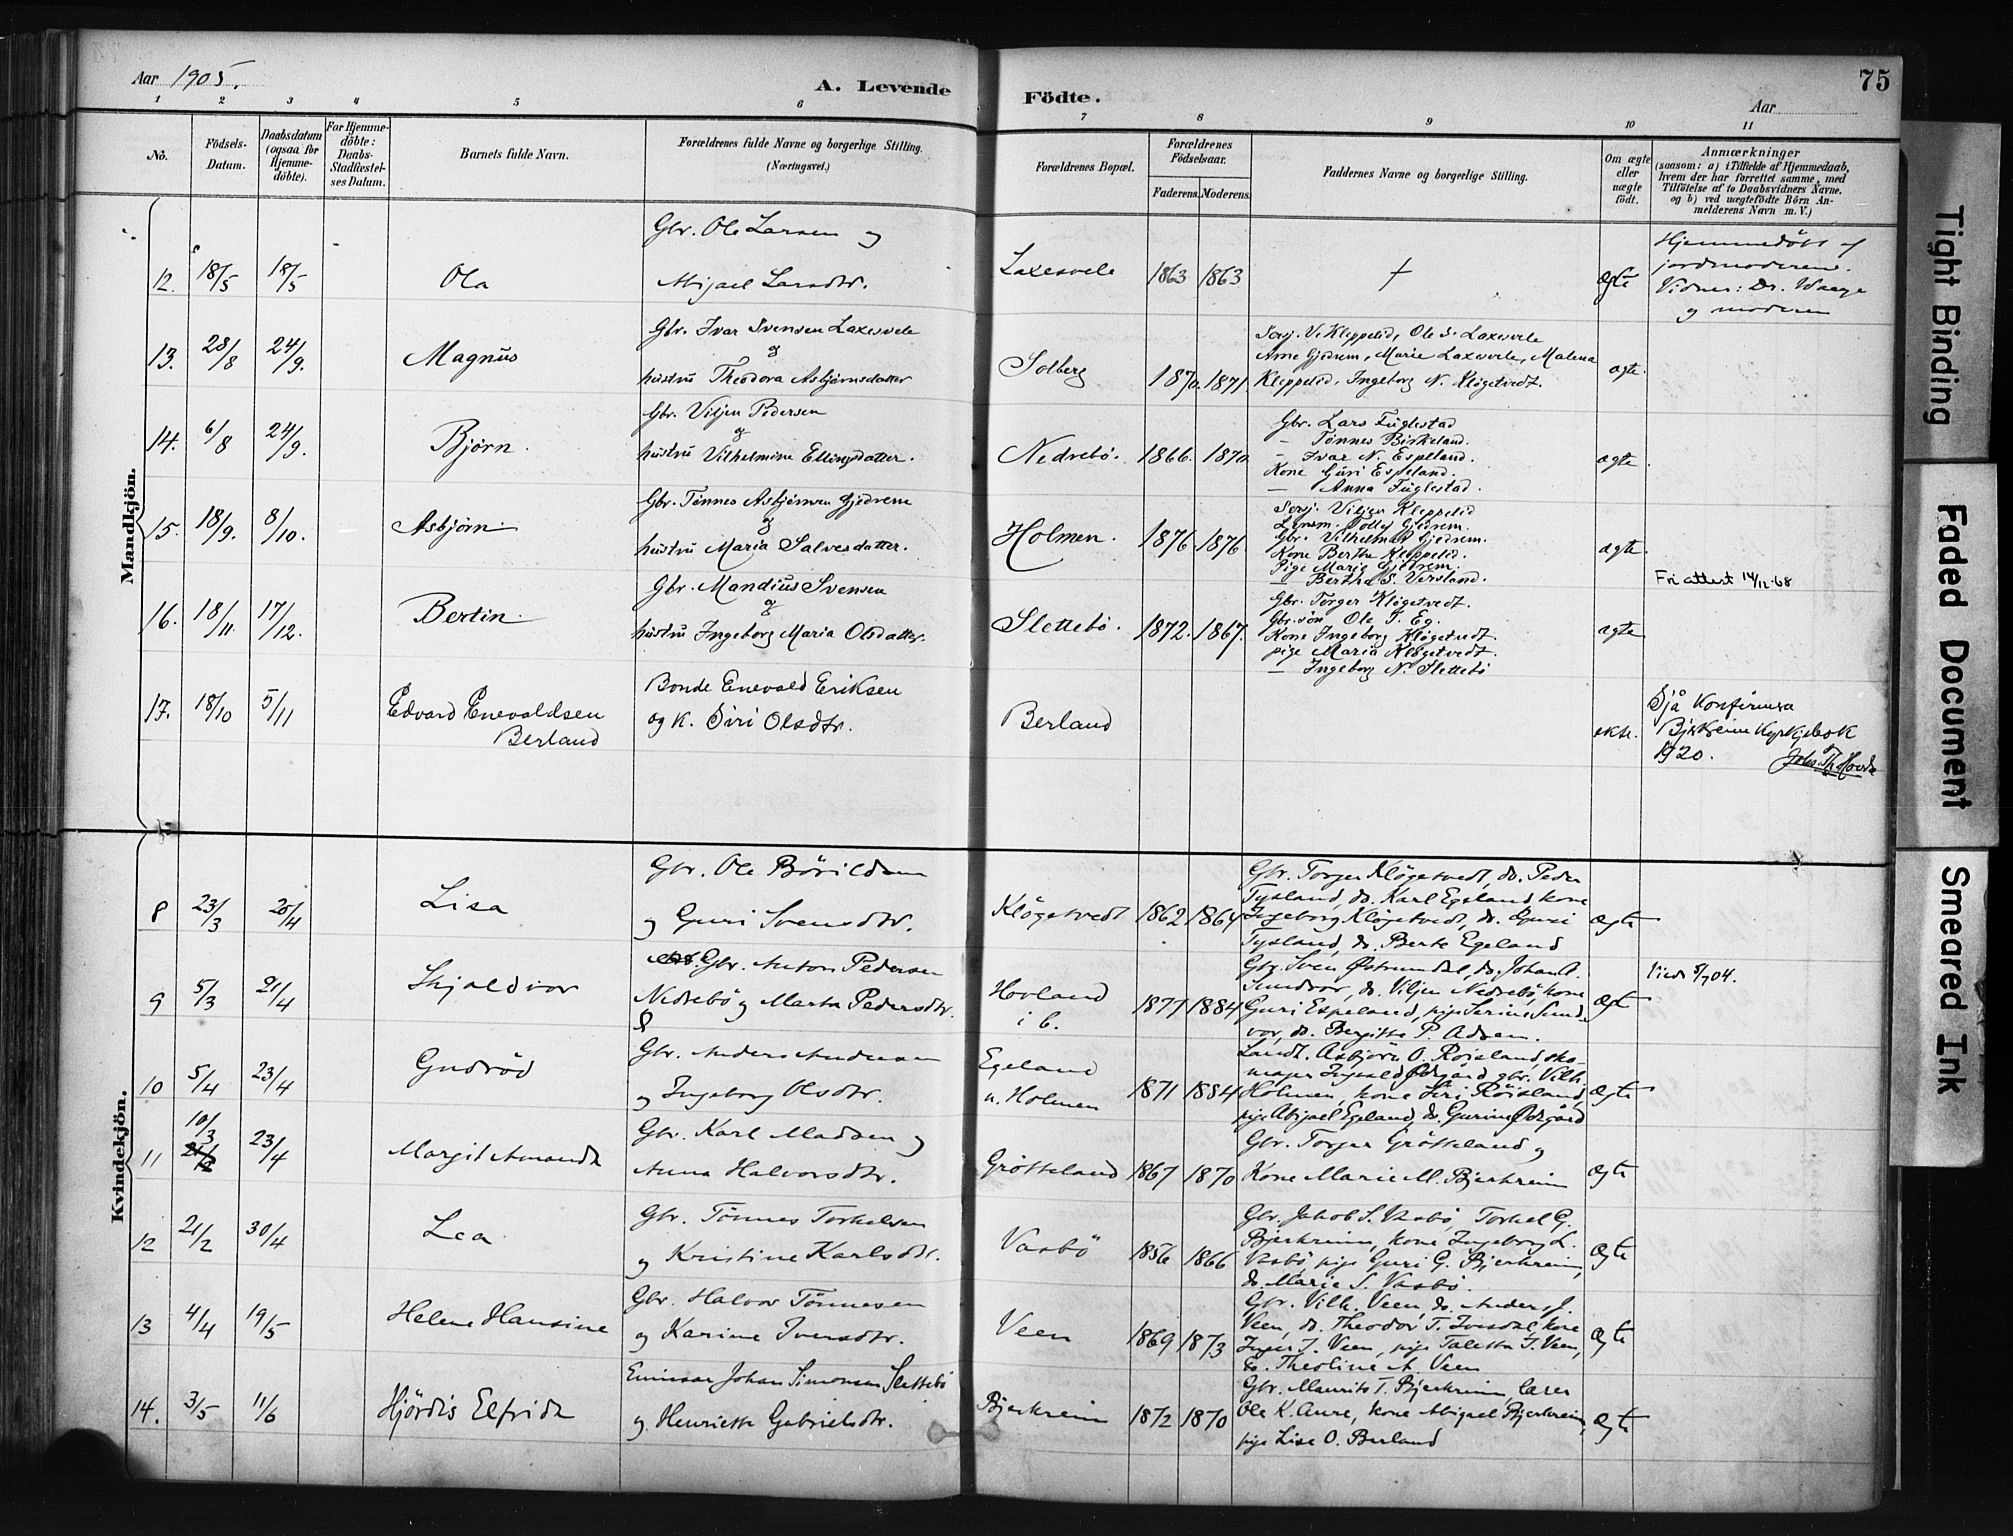 Aar 1905.
A. Levende Födte.
75
Aar
1 2 3 4 5 6 7 8 9 10 11
No.
Födsels-Datum.
Daabsdatum (ogsaa for Hjemme-döbte).
For Hjemme-döbte: Daabs-Stadfæstel-ses Datum.
Barnets fulde Navn.
Forældrenes fulde Navne og borgerlige Stilling. (Næringsvei.)
Forældrenes Bopæl.
Forældrenes Födselsaar.
Faderens. Moderens.
Faddernes Navne og borgerlige Stilling.
Om ægte eller uægte födt.
Anmærkninger
(saasom: a) i Tilfælde af Hjemmedaab,
hvem der har forrettet samme, med
Tilföielse af to Daabsvidners Navne.
og b) ved uægtefödte Börn An-
melderens Navn m. V.)
Mandkjön.
12. 18/5 18/5 Ola
Gbr. Ole Larsen og
Abijael Larsdtr.
Laxesvele 1863 1863 † ægte
Hjemmedöbt af
jordmoderen.
Vidner: Dr. Waage
og moderen
13. 28/8 24/9. Magnus
Gbr. Ivar Svensen Laxesvele
og
hustru Theodora Asbjørnsdatter
Solberg 1870. 1871.
Sersj. V. Kleppelid, Ole S. Laxesvele
Arne Gjedrem, Marie Laxesvele, Malena
Kleppelid, Ingeborg N. Kløgetvedt.
ægte.
14. 6/8 24/9. Bjørn.
Gbr. Viljen Pedersen
og
hustru Vilhelmine Ellingsdatter.
Nedrebö. 1866. 1870
Gbr. Lars Fuglestad
— Tønnes Birkeland.
— Ivar N. Espeland.
Kone Guri Espeland.
— Anna Fuglestad.
ægte
15. 18/9. 8/10. Asbjørn.
Gbr. Tønnes Asbjørnsen Gjedrem
og
hustru Maria Salvesdatter.
Holmen. 1876. 1876.
Sersj. Viljen Kleppelid
Lensm. Tolley Gjedrem.
Gbr. Vilhelm Gjedrem.
Kone Berthe Kleppelid.
Pige Marie Gjedrem.
— Bertha S. Versland.
ægte.
Fri attest 14/12-68
16. 18/11. 17/12. Bertin.
Gbr. Mandius Svensen
og
hustru Ingeborg Maria Olsdatter.
Slettebö. 1872. 1867.
Gbr. Torger Kløgetvedt.
Gbr.søn Ole T. Eg.
Kone Ingeborg Kløgetvedt.
pige Maria Kløgetvedt.
— Ingeborg N. Slettebö
ægte
17. 18/10 5/11 Edvard Enevaldsen
Berland
Bonde Enevald Eriksen
og K. Siri Olsdtr.
Berland
ekte.
Sjå Konfirmera
Bjerkreim Kyrkjebok
1920.
Kvindekjön.
8 23/3 20/4 Lisa
Gbr. Ole Börildsen
og Guri Svensdtr.
Klögetvedt 1862 1864
Gbr. Torger Klögetvedt, do. Peder
Tysland, do. Karl Egeland, kone
Ingeborg Klögetvedt, do. Guri
Tysland, do. Berte Egeland
ægte
9 5/3 21/4 Skjaldvor
Gbr. Anton Pedersen
Nedrebö og Marta Pedersdtr.
Hovland
i b.
1877 1884
Gbr. Sven Østrumdal, do. Johan A.
Sundvor, do. Viljen Nedrebö, kone
Guri Espeland, pige Serine Sund-
vor, do. Bergitte P.
ægt
Viede 5/7 04.
10 5/4 23/4 Gudröd
Gbr. Anders Andersen
og Ingeborg Olsdtr.
Egeland
u. Holmen
1871 1884
Landt. Asbjörn O. Röisland, sko-
mager Ingvald Ødegård, gbr. Vilh.
Holmen, kone Siri Röisland,
pige Abigael Egeland, do. Gurine Ødegård
ægte
11 10/3 23/4 Margit Amanda
Gbr. Karl Madsen og
Anna Halvorsdtr.
Grötteland 1867 1870
Gbr. Torger Grötteland og
Kone Marie M. Bjerkreim
ægte
12 21/2 30/4 Lea
Gbr. Tönnes Torkelsen
og Kristine Karlsdtr.
Vasbö 1856 1866
Gbr. Jakob S. Vasbö, Torkel G.
Bjerkreim, kone Ingeborg L.
Vasbö, pige Guri G. Bjerkreim,
do. Marie S. Vasbö.
ægte
13 4/4 19/5 Helene Hansine
Gbr. Halvor Tönnesen
og Karine Iversdtr.
Veen 1869 1873
Gbr. Vilh. Veen, do. Anders J.
Veen, do. Theodor T. Ivesdal, kone
Inger T. Veen, pige Taletta T. Veen,
do. Theoline A. Veen
ægte
14. 3/5 11/6 Hjördis Elfrida
Emissær Johan Simonsen Slettebö
og Henriette Gabrielsdtr.
Bjerkreim 1872 1870
Gbr. Maurits T. Bjerkreim, lærer
Ole K. Aure, kone Abigael Bjerkreim,
pige Lise O. Berland
ægte
Tight Binding
Faded Document
Smeared Ink